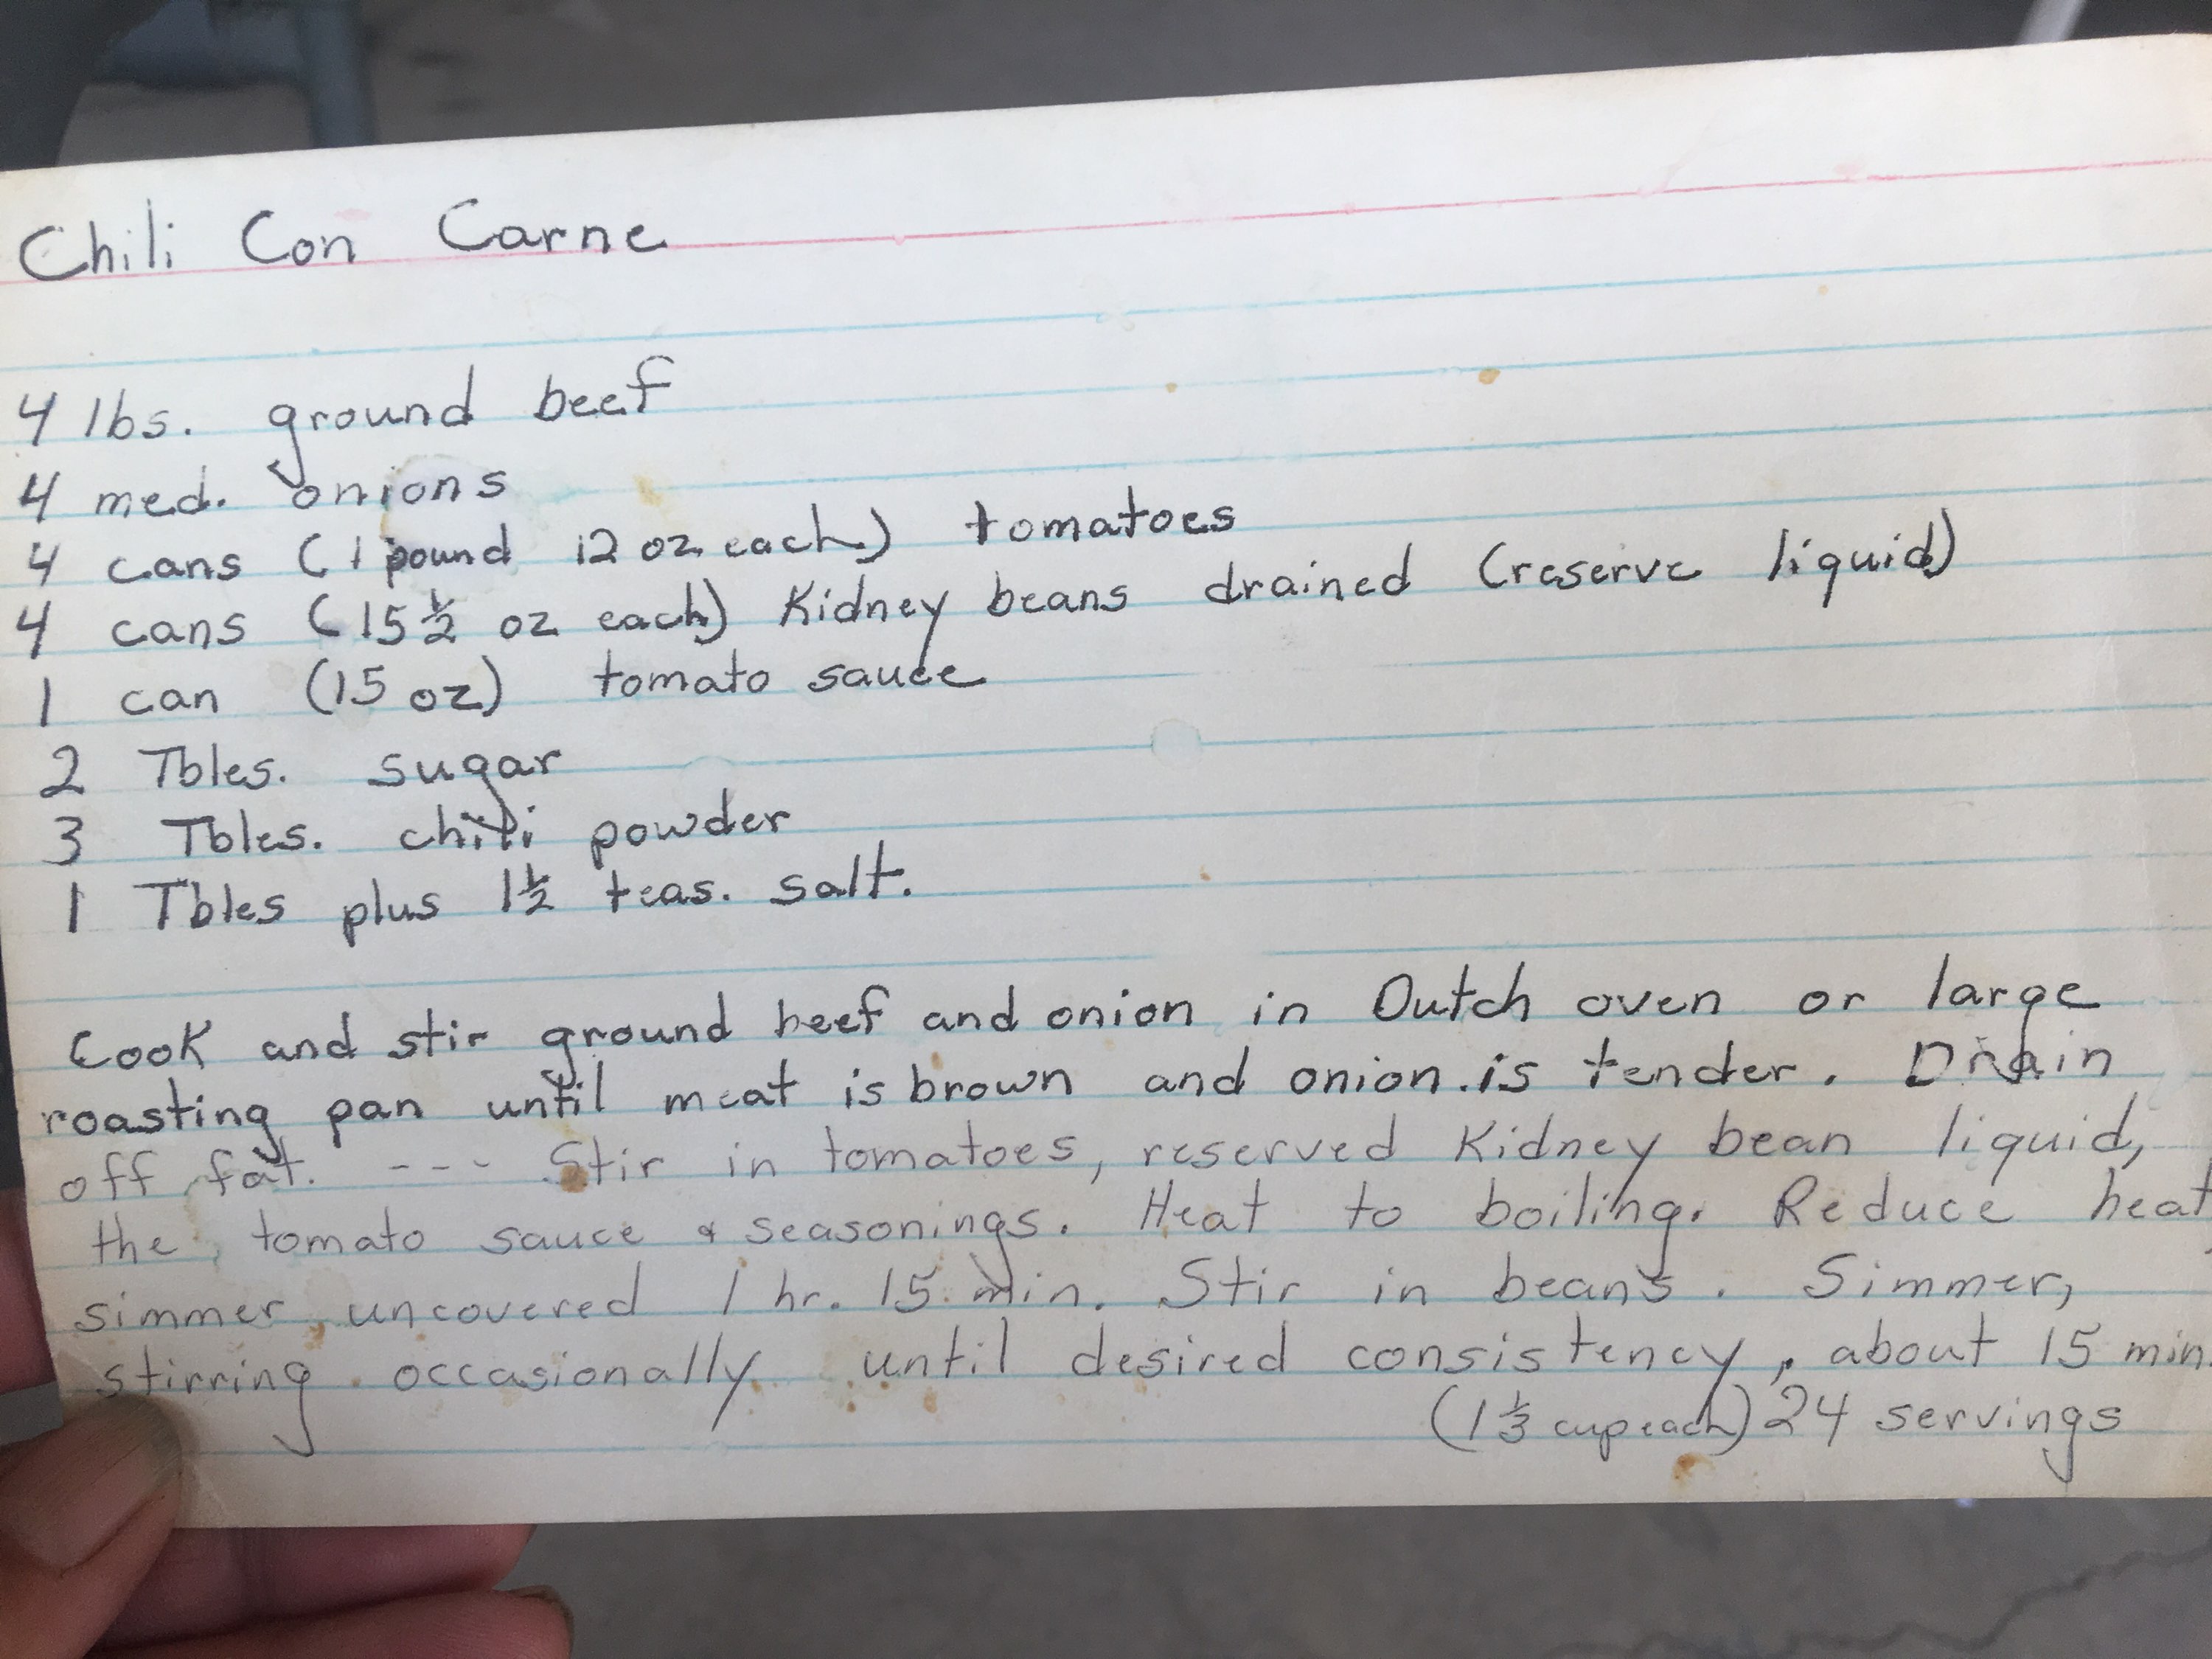 Chili Con Carne
4 lbs. ground beef
4 med. onions
4 cans (1 pound 12 oz. each) tomatoes
4 cans (15 ½ oz each) Kidney beans drained (reserve liquid)
1 can (15 oz) tomato sauce
2 Tbles. sugar
3 Tbles. chili powder
1 Tbles plus 1½ teas. salt.
Cook and stir ground beef and onion in Dutch oven or large
roasting pan until meat is brown and onion is tender. Drain
off fat. --- Stir in tomatoes, reserved Kidney bean liquid,
the tomato sauce & seasonings. Heat to boiling. Reduce heat,
simmer uncovered 1 hr. 15 min. Stir in beans. Simmer,
stirring occasionally until desired consistency, about 15 min.
(1 ⅓ cup each) 24 servings